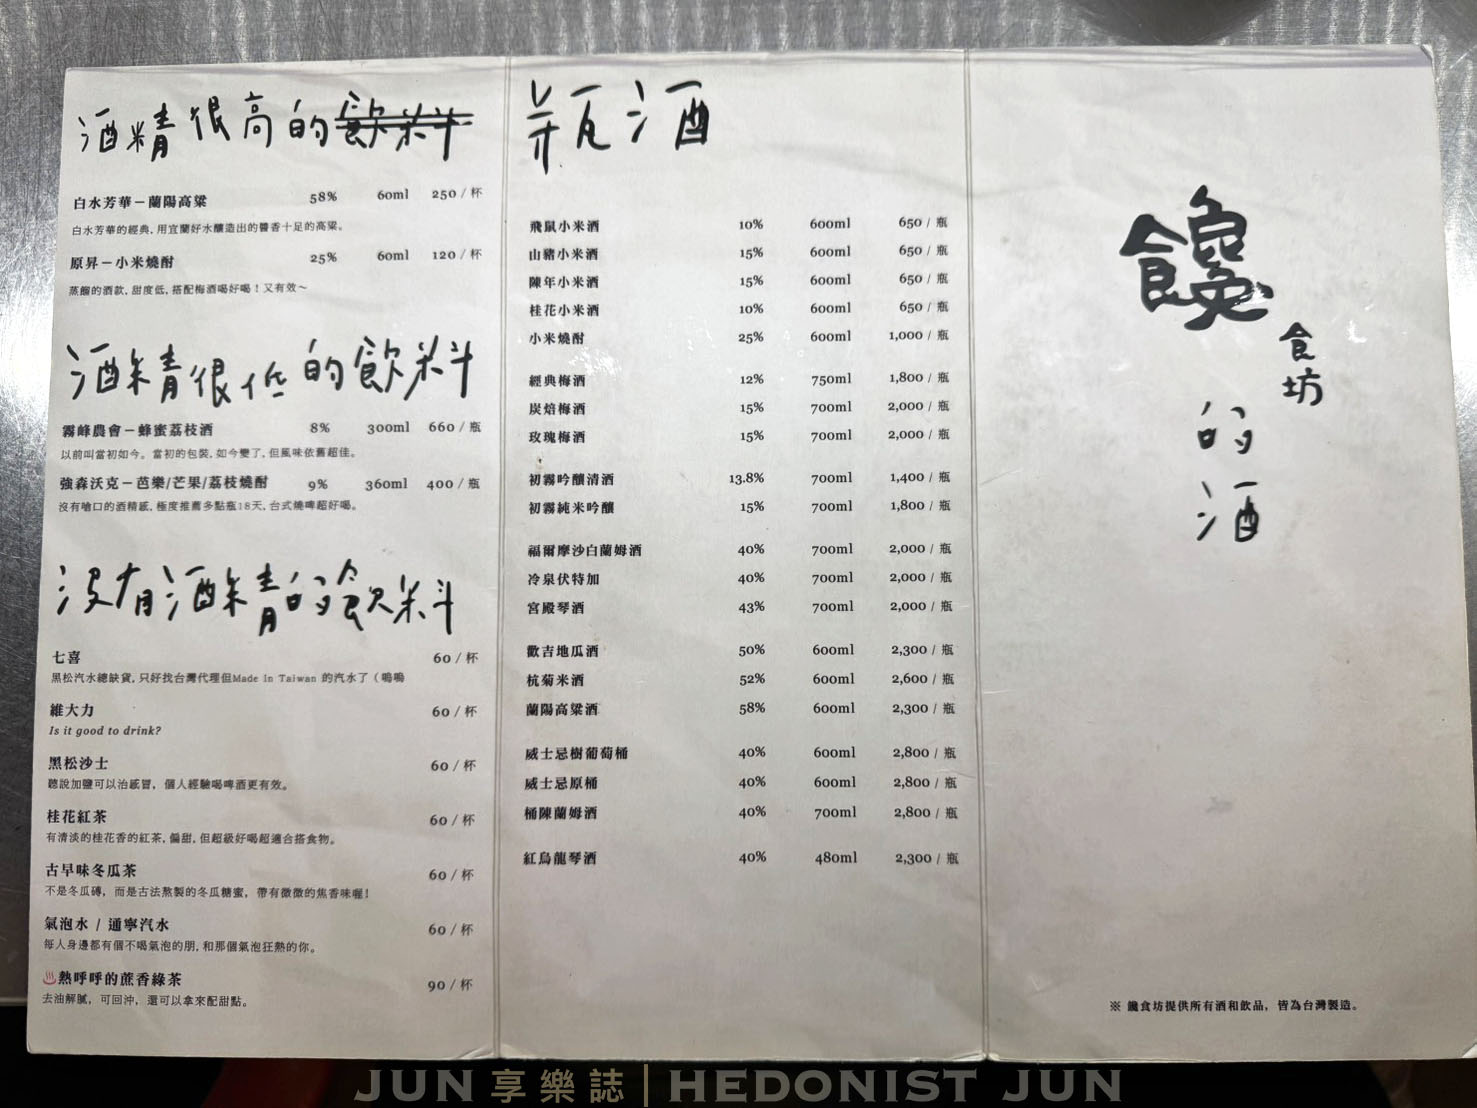 酒精很高的飲料
白水芳華－蘭陽高粱 58% 60ml 250 / 杯
白水芳華的經典, 用宜蘭好水釀造出的醬香十足的高粱。
原昇－小米燒酎 25% 60ml 120 / 杯
蒸餾的酒款, 甜度低, 搭配梅酒喝好喝！又有效～
酒精很低的飲料
霧峰農會－蜂蜜荔枝酒 8% 300ml 660 / 瓶
以前叫當初如今。當初的包裝, 如今變了, 但風味依舊超佳。
強森沃克－芭樂/芒果/荔枝燒酎 9% 360ml 400 / 瓶
沒有嗆口的酒精感, 極度推薦多點瓶18天, 台式燒啤超好喝。
沒有酒精的飲料
七喜 60 / 杯
黑松汽水總缺貨, 只好找台灣代理但Made In Taiwan 的汽水了（嗚嗚
維大力 60 / 杯
Is it good to drink?
黑松沙士 60 / 杯
聽說加鹽可以治感冒，個人經驗喝啤酒更有效。
桂花紅茶 60 / 杯
有清淡的桂花香的紅茶, 偏甜, 但超級好喝超適合搭食物。
古早味冬瓜茶 60 / 杯
不是冬瓜磚，而是古法熬製的冬瓜糖蜜，帶有微微的焦香味喔！
氣泡水 / 通寧汽水 60 / 杯
每人身邊都有個不喝氣泡的朋, 和那個氣泡狂熱的你。
♨熱呼呼的蔗香綠茶 90 / 杯
去油解膩，可回沖，還可以拿來配甜點。
瓶酒
飛鼠小米酒 10% 600ml 650 / 瓶
山豬小米酒 15% 600ml 650 / 瓶
陳年小米酒 15% 600ml 650 / 瓶
桂花小米酒 10% 600ml 650 / 瓶
小米燒酎 25% 600ml 1,000 / 瓶
經典梅酒 12% 750ml 1,800 / 瓶
炭焙梅酒 15% 700ml 2,000 / 瓶
玫瑰梅酒 15% 700ml 2,000 / 瓶
初霧吟釀清酒 13.8% 700ml 1,400 / 瓶
初霧純米吟釀 15% 700ml 1,800 / 瓶
福爾摩沙白蘭姆酒 40% 700ml 2,000 / 瓶
冷泉伏特加 40% 700ml 2,000 / 瓶
宮殿琴酒 43% 700ml 2,000 / 瓶
歡吉地瓜酒 50% 600ml 2,300 / 瓶
杭菊米酒 52% 600ml 2,600 / 瓶
蘭陽高粱酒 58% 600ml 2,300 / 瓶
威士忌樹葡萄桶 40% 600ml 2,800 / 瓶
威士忌原桶 40% 600ml 2,800 / 瓶
桶陳蘭姆酒 40% 700ml 2,800 / 瓶
紅烏龍琴酒 40% 480ml 2,300 / 瓶
饞
食坊
的
酒
※ 饞食坊提供所有酒和飲品，皆為台灣製造。
JUN 享樂誌 | HEDONIST JUN